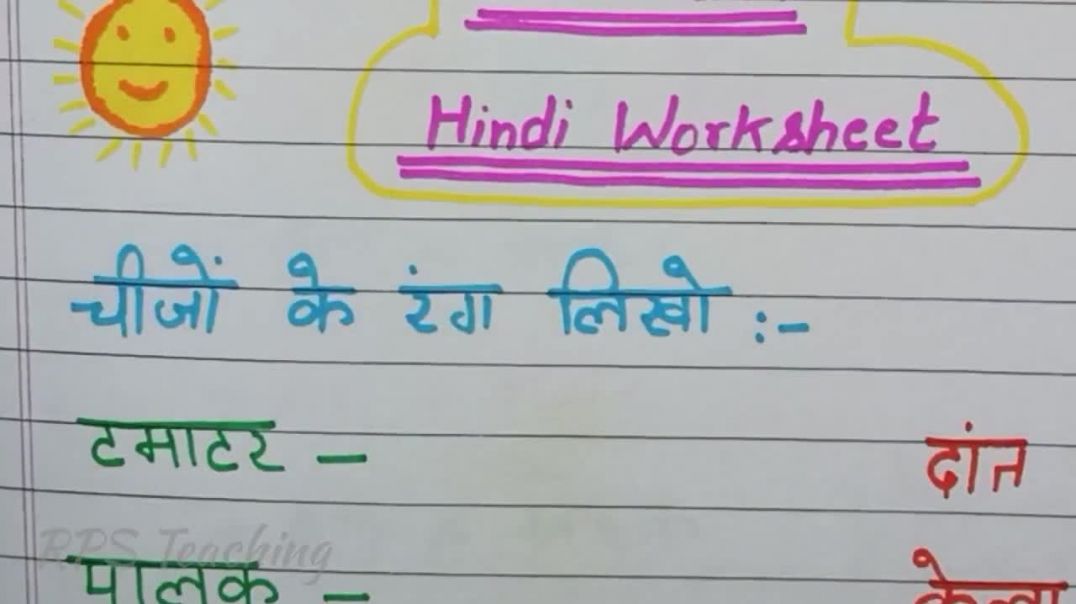 Hindi Worksheet
चीजों के रंग लिखो :-
टमाटर - दांत
RPS Teaching
पालक - केला